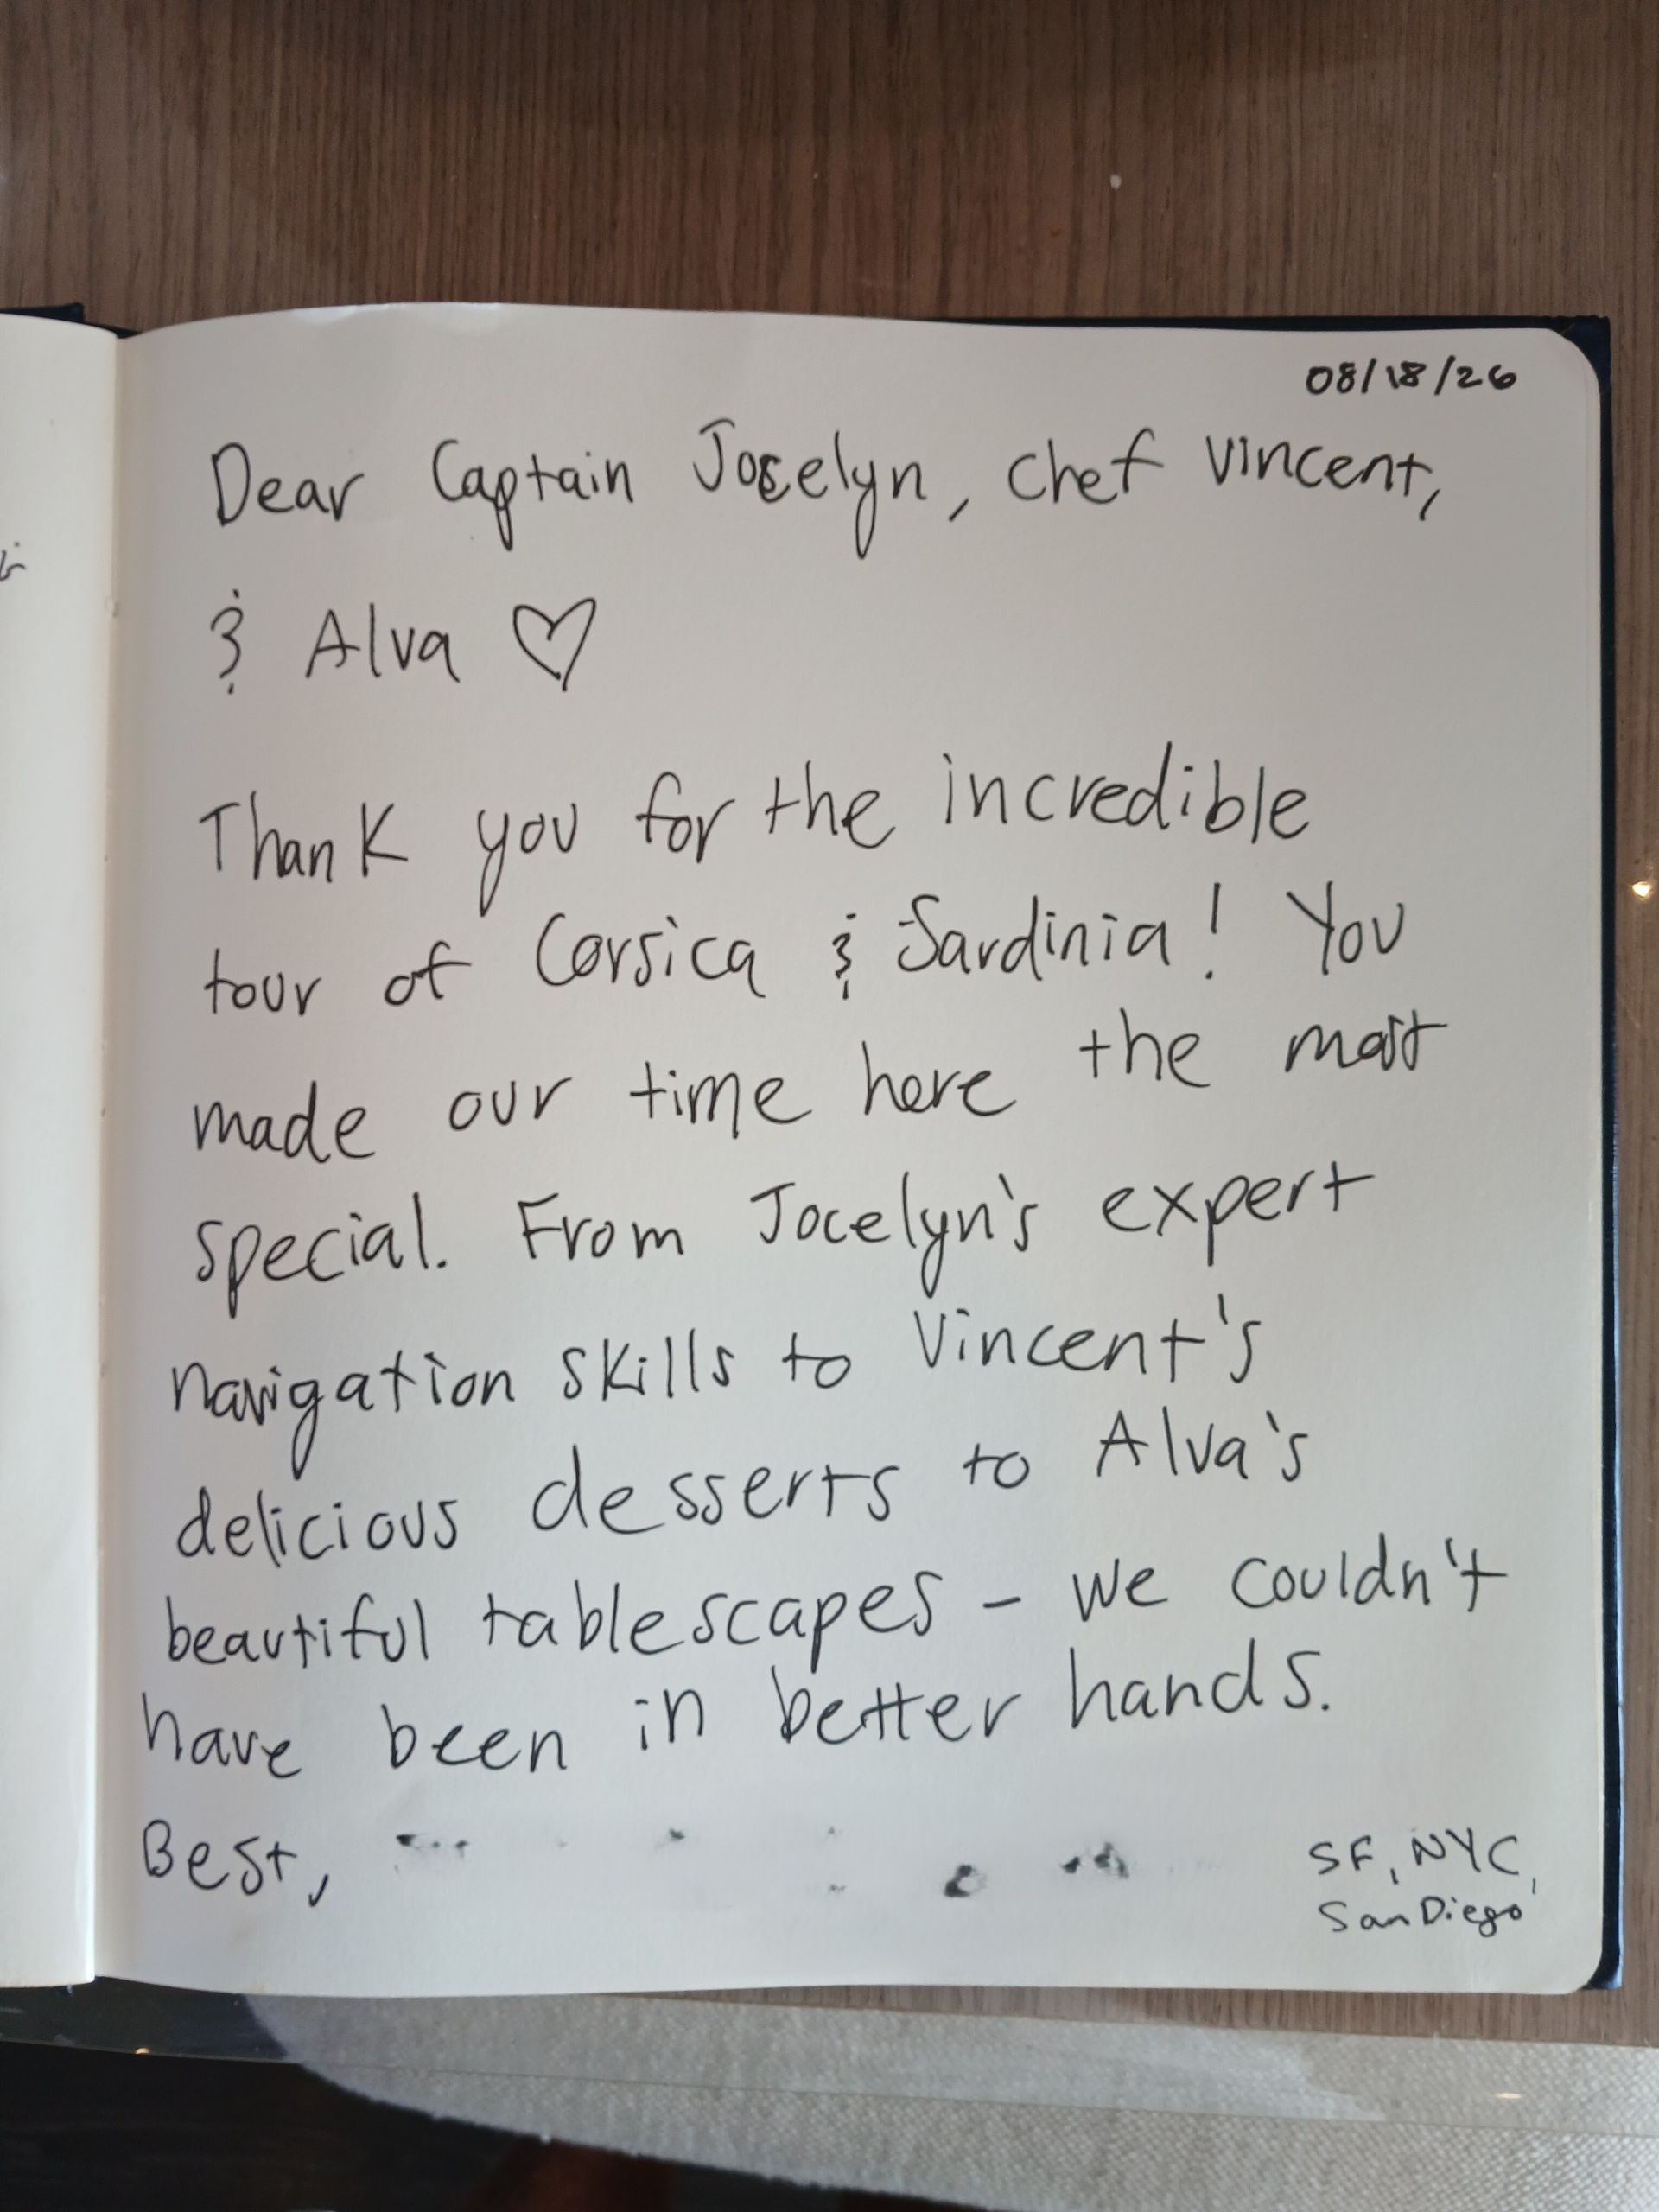 08/18/26
Dear Captain Jocelyn, Chef Vincent,
& Alva ♡
Thank you for the incredible
tour of Corsica & Sardinia! You
made our time here the most
special. From Jocelyn's expert
navigation skills to Vincent's
delicious desserts to Alva's
beautiful tablescapes – we couldn't
have been in better hands.
Best,
SF, NYC,
San Diego